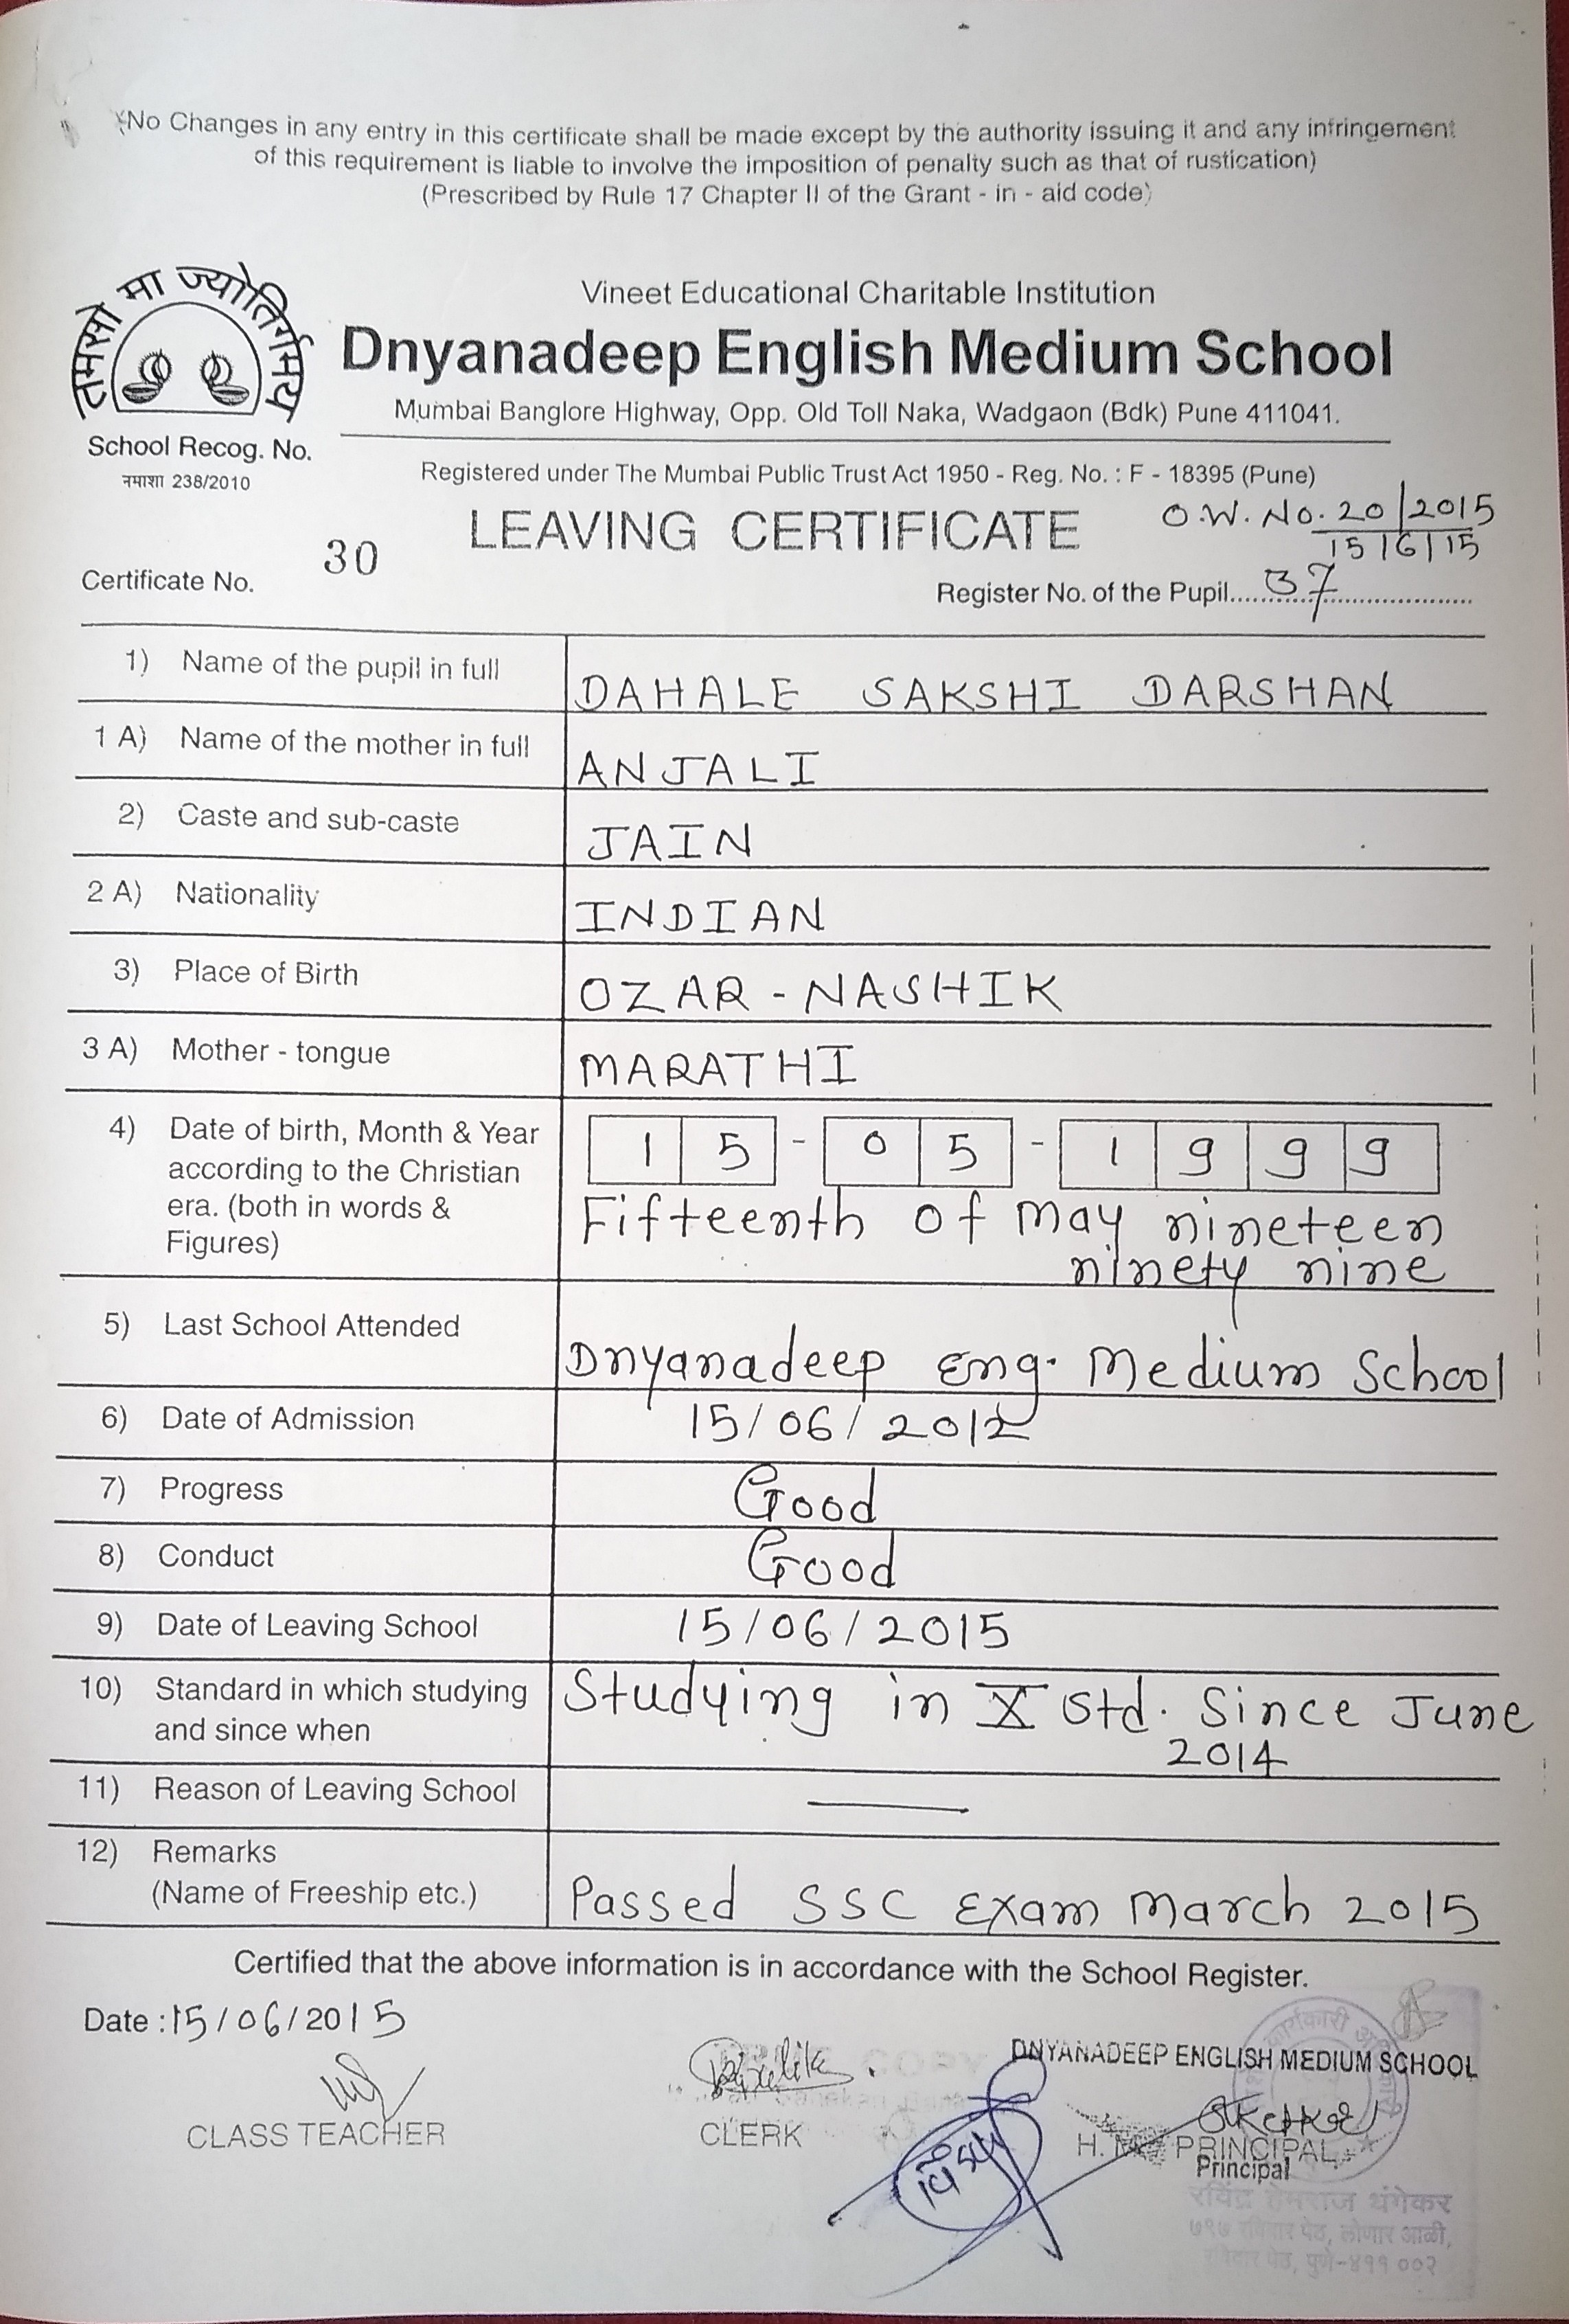 (No Changes in any entry in this certificate shall be made except by the authority issuing it and any infringement
of this requirement is liable to involve the imposition of penalty such as that of rustication)
(Prescribed by Rule 17 Chapter II of the Grant - in - aid code)
तमसो मा ज्योतिर्गमय
Vineet Educational Charitable Institution
Dnyanadeep English Medium School
Mumbai Banglore Highway, Opp. Old Toll Naka, Wadgaon (Bdk) Pune 411041.
School Recog. No.
नमाशा 238/2010
Registered under The Mumbai Public Trust Act 1950 - Reg. No. : F - 18395 (Pune)
LEAVING CERTIFICATE
O.W. No. 20/2015
15/6/15
Certificate No. 30
Register No. of the Pupil.....37.....
1) Name of the pupil in full DAHALE SAKSHI DARSHAN
1 A) Name of the mother in full ANJALI
2) Caste and sub-caste JAIN
2 A) Nationality INDIAN
3) Place of Birth OZAR - NASHIK
3 A) Mother - tongue MARATHI
4) Date of birth, Month & Year 15 - 05 - 1999
according to the Christian
era. (both in words & Fifteenth of may nineteen
Figures) ninety nine
5) Last School Attended Dnyanadeep Eng. Medium School
6) Date of Admission 15/06/2012
7) Progress Good
8) Conduct Good
9) Date of Leaving School 15/06/2015
10) Standard in which studying Studying in X Std. Since June
and since when 2014
11) Reason of Leaving School —
12) Remarks
(Name of Freeship etc.) Passed SSC Exam March 2015
Certified that the above information is in accordance with the School Register.
Date : 15/06/2015
DNYANADEEP ENGLISH MEDIUM SCHOOL
CLASS TEACHER
CLERK
H. M. PRINCIPAL
Principal
कार्यकारी
रविंद्र हेमराज धंगेकर
७९७ रविवार पेठ, लोणार आळी,
रविवार पेठ, पुणे-४११ ००२